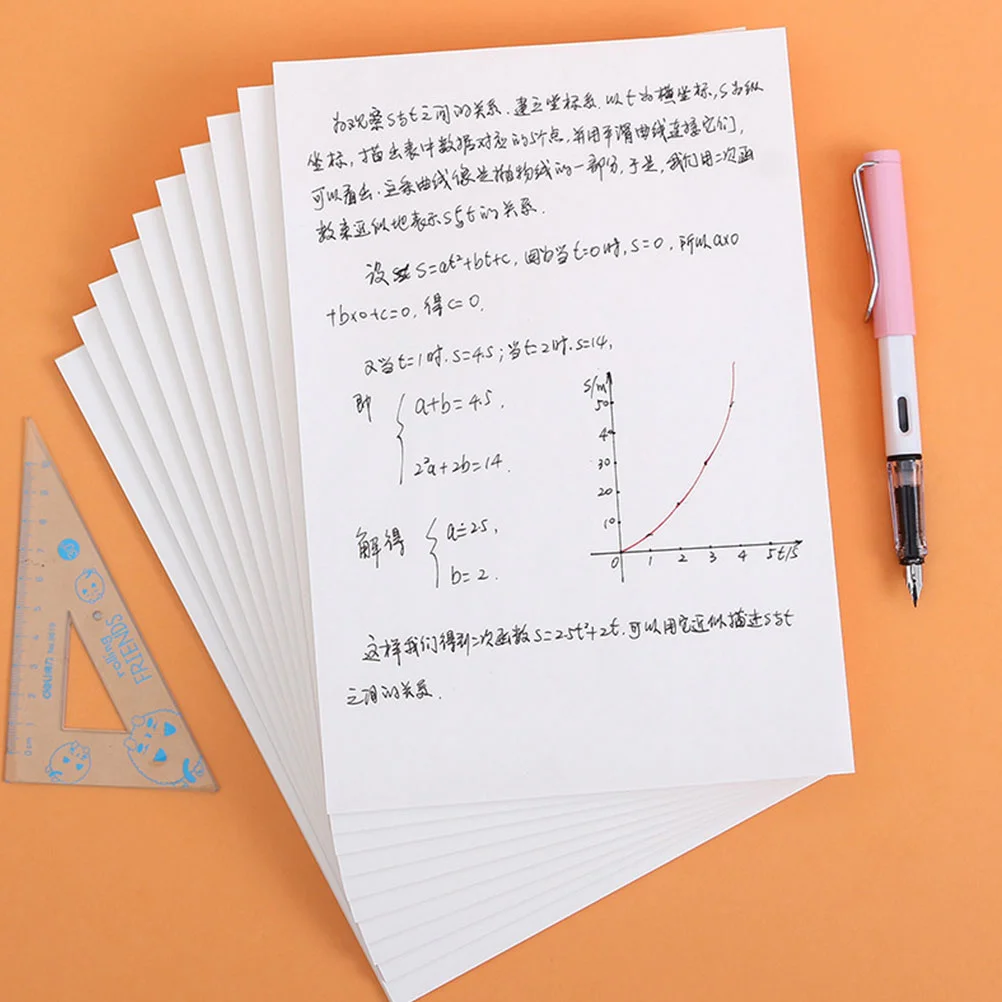 为观察S与t之间的关系.建立坐标系.以t为横坐标,S为纵
坐标,描出表中数据对应的5个点,并用平滑曲线连接它们,
可以看出.这条曲线像是抛物线的一部分,于是,我们用二次函
数来近似地表示S与t的关系.
设 S=at²+bt+c,因为当t=0时,s=0,所以a×0
+b×0+c=0,得c=0.
又当t=1时.s=4.5;当t=2时.s=14,
即
a+b=4.5,
2²a+2b=14.
解得
a=2.5,
b=2.
这样我们得到二次函数S=2.5t²+2t.可以用它近似描述S与t
之间的关系.
S/m
50
40
30
20
10
0 1 2 3 4 5 t/s
deli 得力
No.
rolling
FRIENDS
0cm 1 2 3 4 5 6 7 8 9